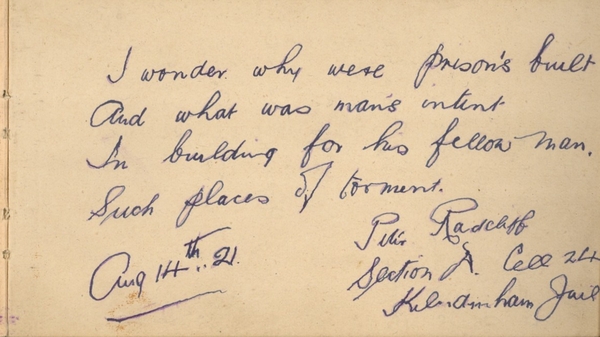 I wonder why were prison's built
And what was man's intent
In building for his fellow man.
Such places of torment.
Peter Radcliff
Section A. Cell 24
Kilmainham Jail
Aug 14th. 21.